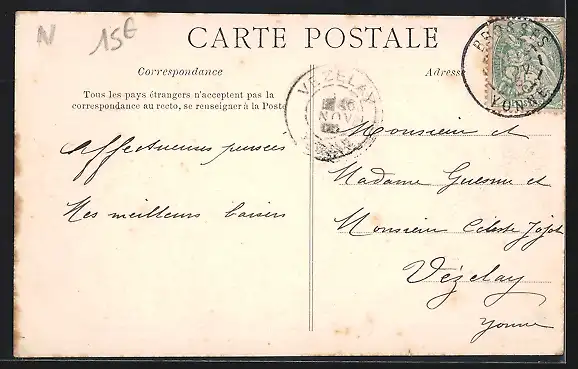 N 15€
CARTE POSTALE
Correspondance
Adresse
Tous les pays étrangers n'acceptent pas la
correspondance au recto, se renseigner à la Poste
BROSSES
YONNE
VÉZELAY
16
NOV
YONNE
Affectueuses pensées
Mes meilleurs baisers
Monsieur et
Madame Guesnu et
Monsieur Céleste Jojot
Vézelay
Yonne